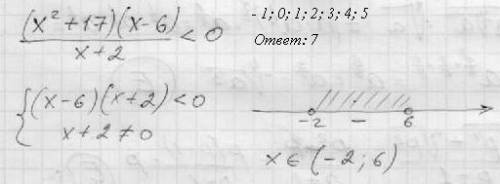 (x² + 17)(x - 6) / x + 2 < 0
- 1; 0; 1; 2; 3; 4; 5
Ответ: 7
{ (x - 6)(x + 2) < 0
x + 2 ≠ 0
-2 - 6
x ∈ (-2; 6)